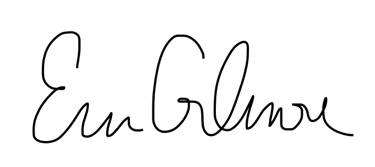 Erin Gilmore